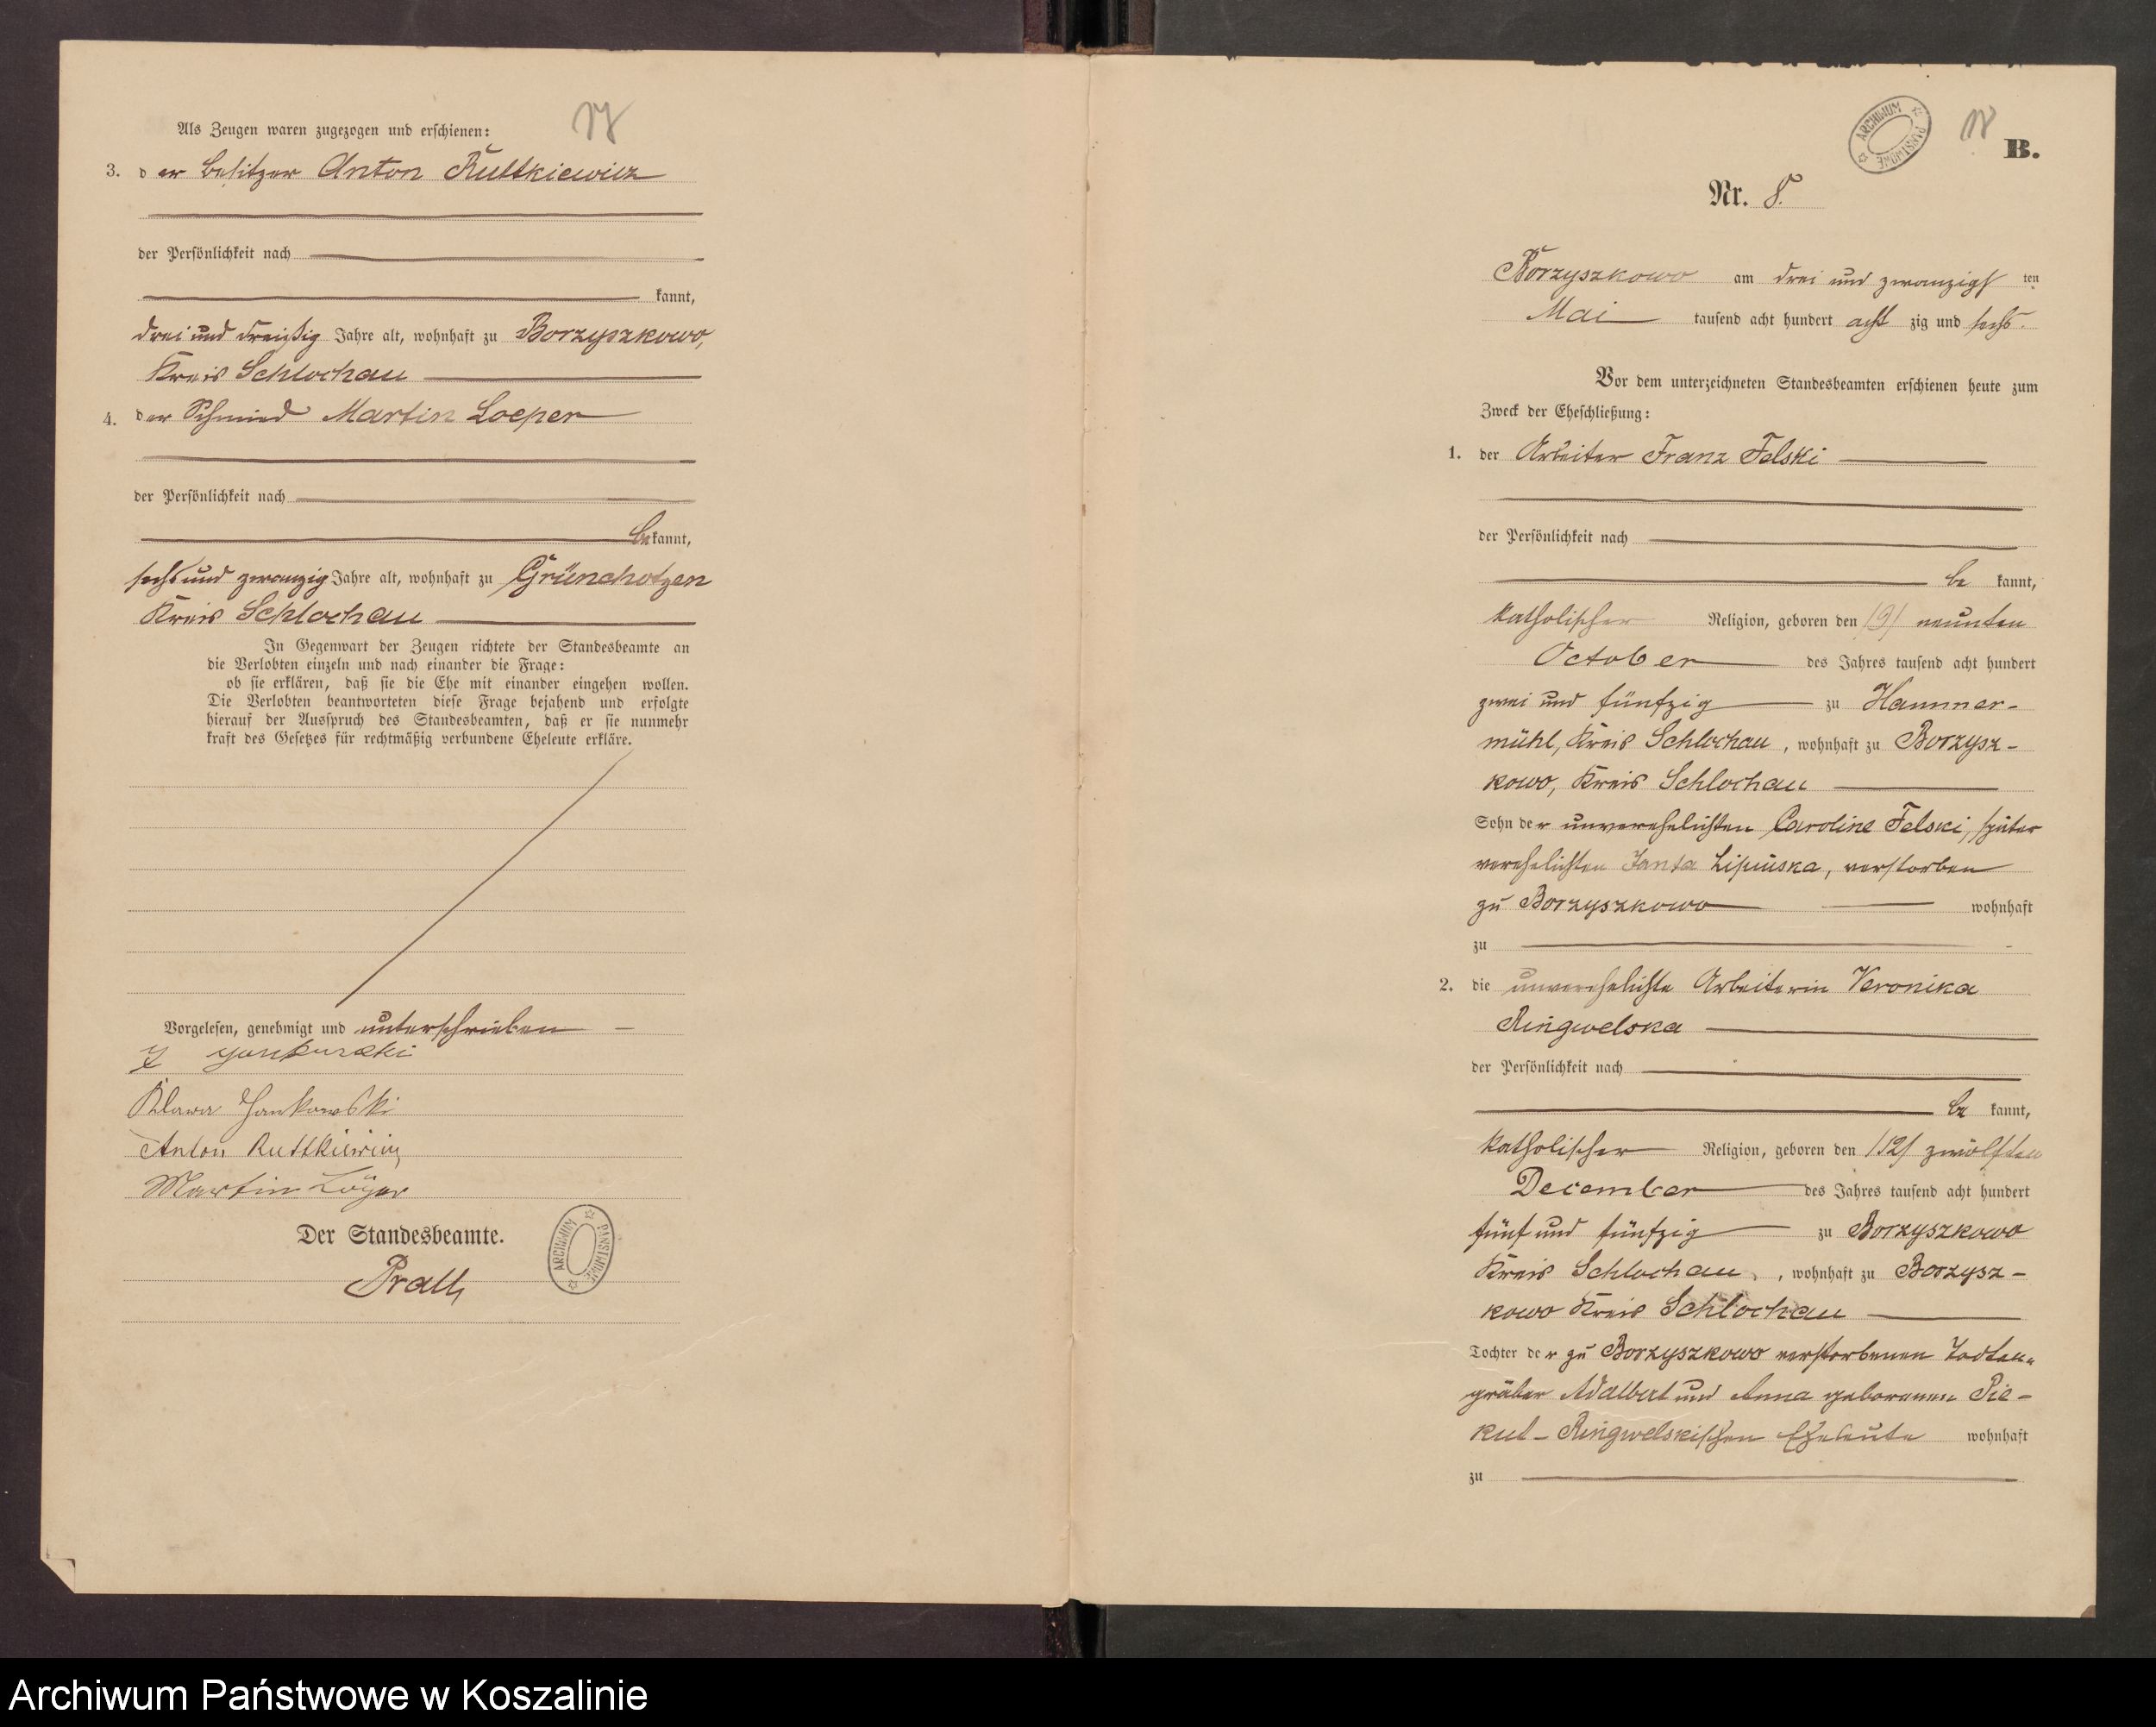 17
Als Zeugen waren zugezogen und erschienen:
3. der Besitzer Anton Ruttkiewicz
der Persönlichkeit nach
kannt,
drei und dreißig Jahre alt, wohnhaft zu Borzyszkowo,
Kreis Schlochau
4. der Schmied Martin Loeper
der Persönlichkeit nach
bekannt,
sechs und zwanzig Jahre alt, wohnhaft zu Grünchotzen
Kreis Schlochau
In Gegenwart der Zeugen richtete der Standesbeamte an
die Verlobten einzeln und nach einander die Frage:
ob sie erklären, daß sie die Ehe mit einander eingehen wollen.
Die Verlobten beantworteten diese Frage bejahend und erfolgte
hierauf der Ausspruch des Standesbeamten, daß er sie nunmehr
kraft des Gesetzes für rechtmäßig verbundene Eheleute erkläre.
Vorgelesen, genehmigt und unterschrieben
Klara Jankowski
Anton Ruttkiewicz
Martin Löper
Der Standesbeamte.
ARCHIWUM PAŃSTWOWE
ARCHIWUM PAŃSTWOWE
18
B.
Nr. 8.
Borzyszkowo am drei und zwanzigsten
Mai tausend acht hundert acht zig und sechs.
Vor dem unterzeichneten Standesbeamten erschienen heute zum
Zweck der Eheschließung:
1. der Arbeiter Franz Felski
der Persönlichkeit nach
be kannt,
katholischer Religion, geboren den /9/ neunten
October des Jahres tausend acht hundert
zwei und fünfzig zu Hammer-
mühl, Kreis Schlochau, wohnhaft zu Borzysz-
kowo, Kreis Schlochau
Sohn der unverehelichten Caroline Felski, später
verehelichten Janta Lipinska, verstorben
zu Borzyszkowo wohnhaft
zu
2. die unverehelichte Arbeiterin Veronika
Ringwelska
der Persönlichkeit nach
be kannt,
katholischer Religion, geboren den /12/ zwölften
December des Jahres tausend acht hundert
fünf und fünfzig zu Borzyszkowo
Kreis Schlochau, wohnhaft zu Borzysz-
kowo Kreis Schlochau
Tochter der zu Borzyszkowo verstorbenen Todten-
gräber Adalbert und Anna geborenen Pie-
kut-Ringwelskischen Eheleute wohnhaft
zu
Archiwum Państwowe w Koszalinie